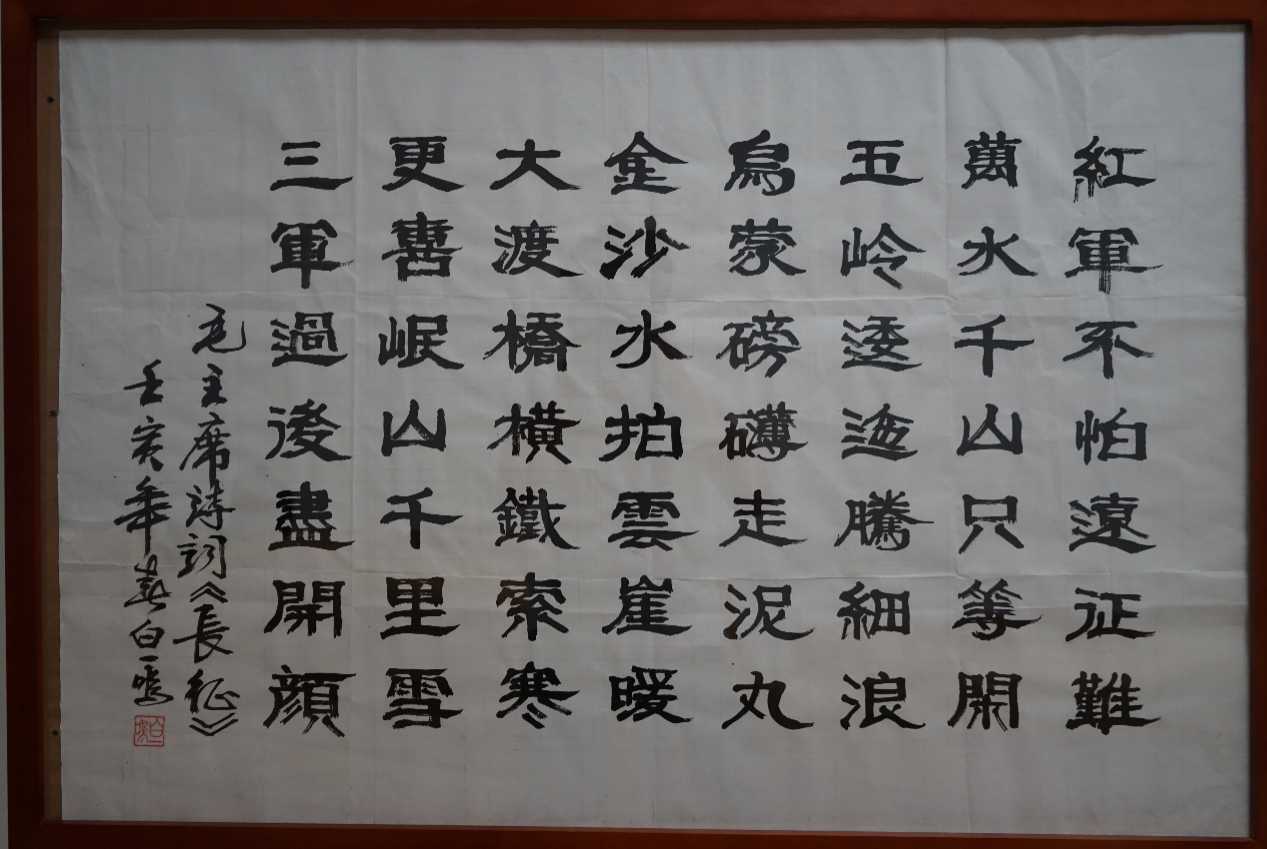 紅軍不怕遠征難
萬水千山只等閑
五岭逶迤騰細浪
烏蒙磅礴走泥丸
金沙水拍雲崖暖
大渡橋橫鐵索寒
更喜岷山千里雪
三軍過後盡開顏
毛主席詩詞《長征》
壬寅年春白一